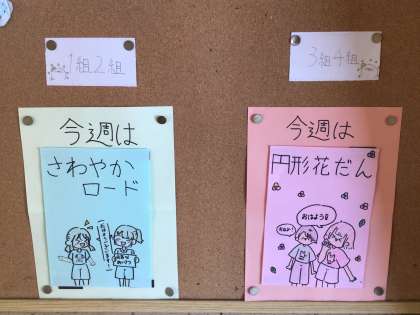 1組2組
今週は
さわやか
ロード
3組4組
今週は
円形花だん
おはよう!!